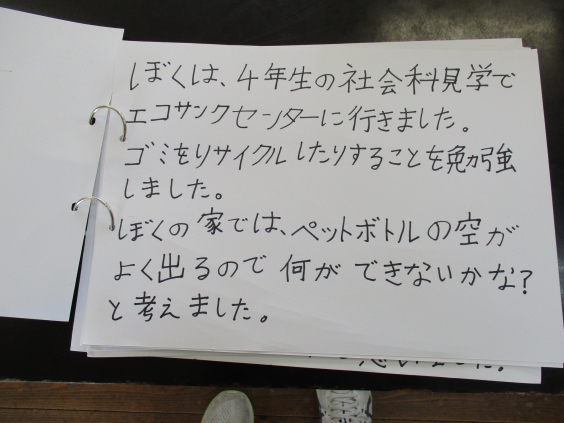 ぼくは、4年生の社会科見学で
エコサンクセンターに行きました。
ゴミをリサイクルしたりすることを勉強
しました。
ぼくの家では、ペットボトルの空が
よく出るので何ができないかな?
と考えました。
思いました。